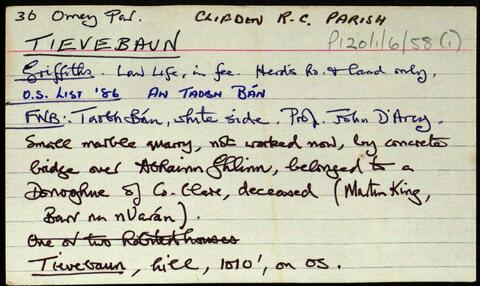 36 Omey Par. CLIFDEN R.C. PARISH
TIEVEBAUN P120/1/6/58 (1)
Griffiths. Law Life, in fee. Herd's Ho. & land only.
O.S. LIST '86 AN TAOBH BÁN
FNB: Taobh Bán, white side. Prop. John D'Arcy.
Small marble quarry, not worked now, by concrete
bridge over Abhainn Ghlinn, belonged to a
Donoghue of Co. Clare, deceased (Martin King,
Barr na nUarán).
One or two houses
Tievebaun, hill, 1010', on OS.